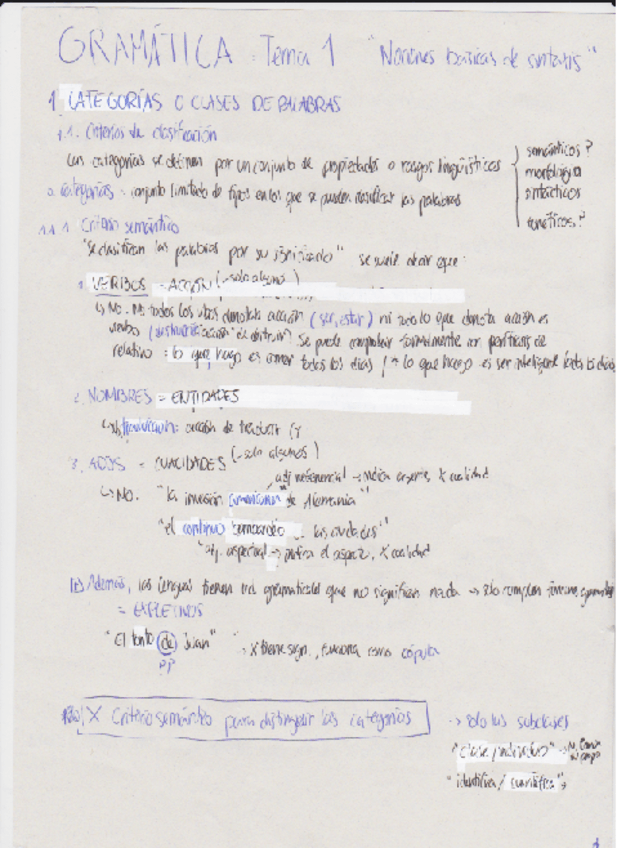 GRAMÁTICA : Tema 1 "Nociones básicas de sintaxis"
1. CATEGORÍAS O CLASES DE PALABRAS
1.1. Criterios de clasificación
Las categorías se definen por un conjunto de propiedades o rasgos lingüísticos
semánticos?
morfológicos
sintácticos
fonéticos?
Categorías = conjunto limitado de tipos en los que se pueden clasificar las palabras
1.1.1. Criterio semántico
"Se clasifican las palabras por su significado" se suele decir que:
1. VERBOS = ACCIÓN (-solo algunos)
↳ No. No todos los vbos denotan acción (ser, estar) ni todo lo que denota acción es
verbo Se puede comprobar formalmente con perífrasis de
relativo: lo que hago es comer todos los días / * lo que hago es ser inteligente todos los días
2. NOMBRES = ENTIDADES
traducción: acción de traducir
3. ADJS = CUALIDADES (-solo algunos)
adj referencial → indica agente, X cualidad
↳ No. "la invasión americana de Alemania"
"el continuo bombardeo las ciudades"
adj. aspectual → indica el aspecto, X cualidad
Además, las lenguas tienen gramaticales que no significan nada → solo cumplen
= EXPLETIVOS
"El tonto de Juan" → X tiene sign., funciona como cópula
X Criterio semántico para distinguir las categorías
→ solo las subclases
"clase
"identifica / cuantifica" →
1